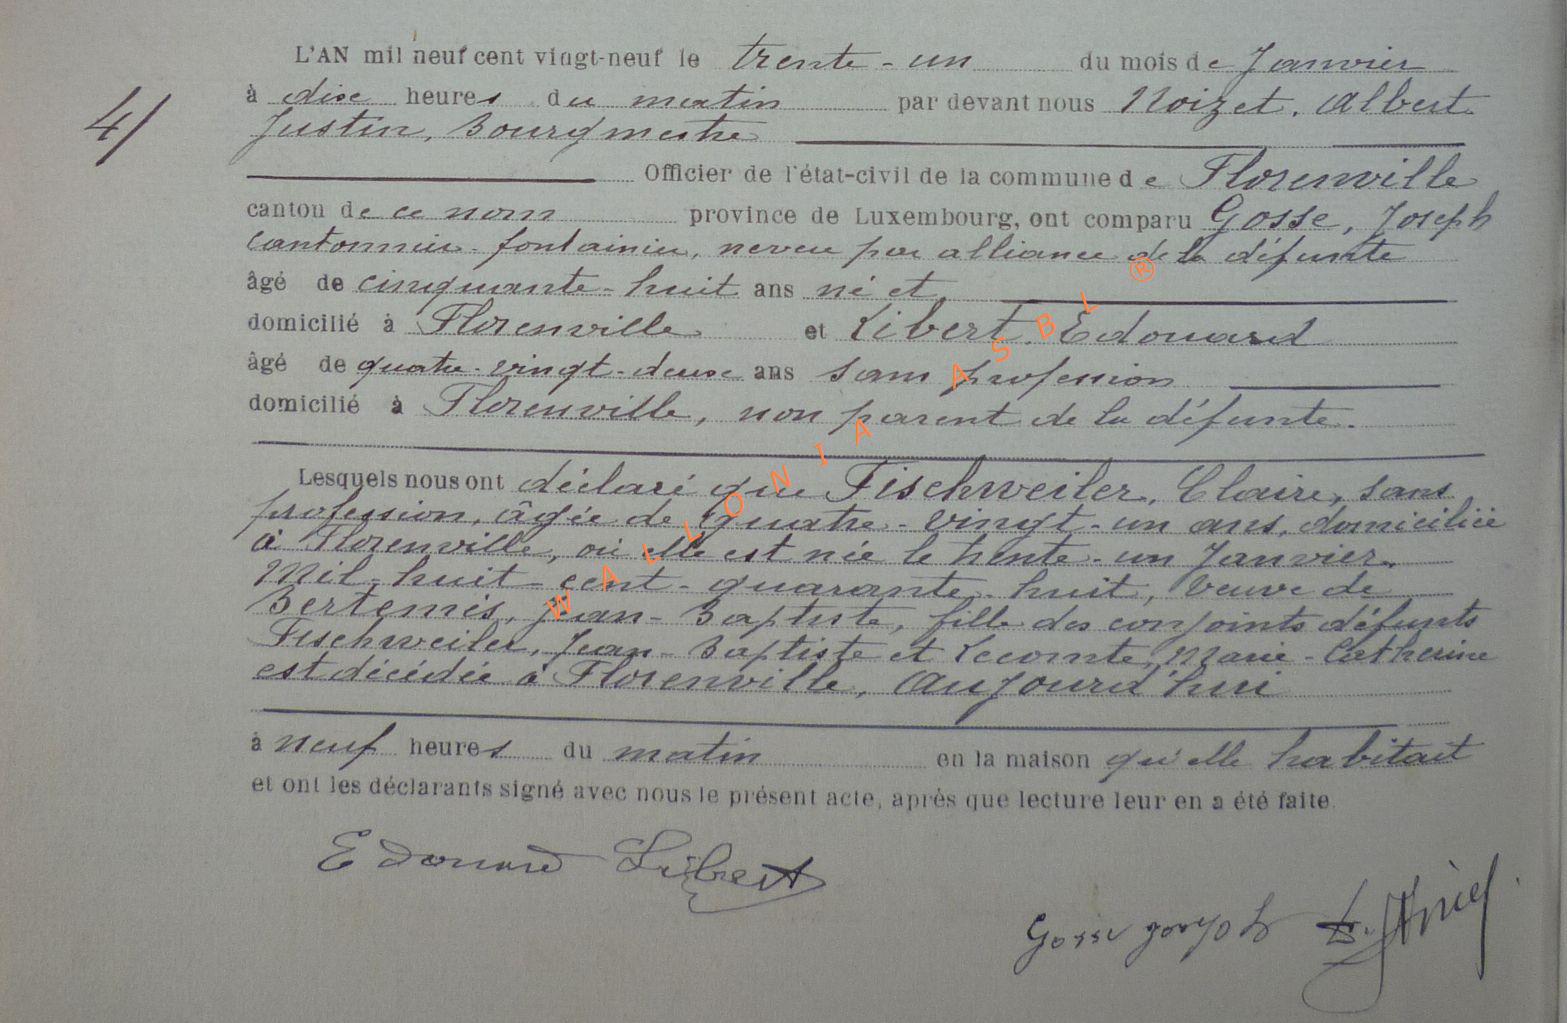 4/
L'AN mil neuf cent vingt-neuf le trente-un du mois de Janvier
à dix heures du matin par devant nous Noizet, Albert
Justin, Bourgmestre
Officier de l'état-civil de la commune de Florenville
canton de ce nom province de Luxembourg, ont comparu Gosse, Joseph
cantonnier-fontainier, neveu par alliance de la défunte
âgé de cinquante-huit ans né et
domicilié à Florenville et Libert Edouard
âgé de quatre-vingt-deux ans sans profession
domicilié à Florenville, non parent de la défunte.
Lesquels nous ont déclaré que Fischweiler, Claire, sans
profession, âgée de quatre-vingt-un ans, domiciliée
à Florenville, où elle est née le trente-un Janvier
Mil-huit-cent-quarante-huit, veuve de
Bertemès, Jean-Baptiste, fille des conjoints défunts
Fischweiler, Jean-Baptiste et Lecomte, Marie-Catherine
est décédée à Florenville, aujourd'hui
à neuf heures du matin en la maison qu'elle habitait
et ont les déclarants signé avec nous le présent acte, après que lecture leur en a été faite.
Edouard Libert
Gosse
WALLONIA ASBL ®